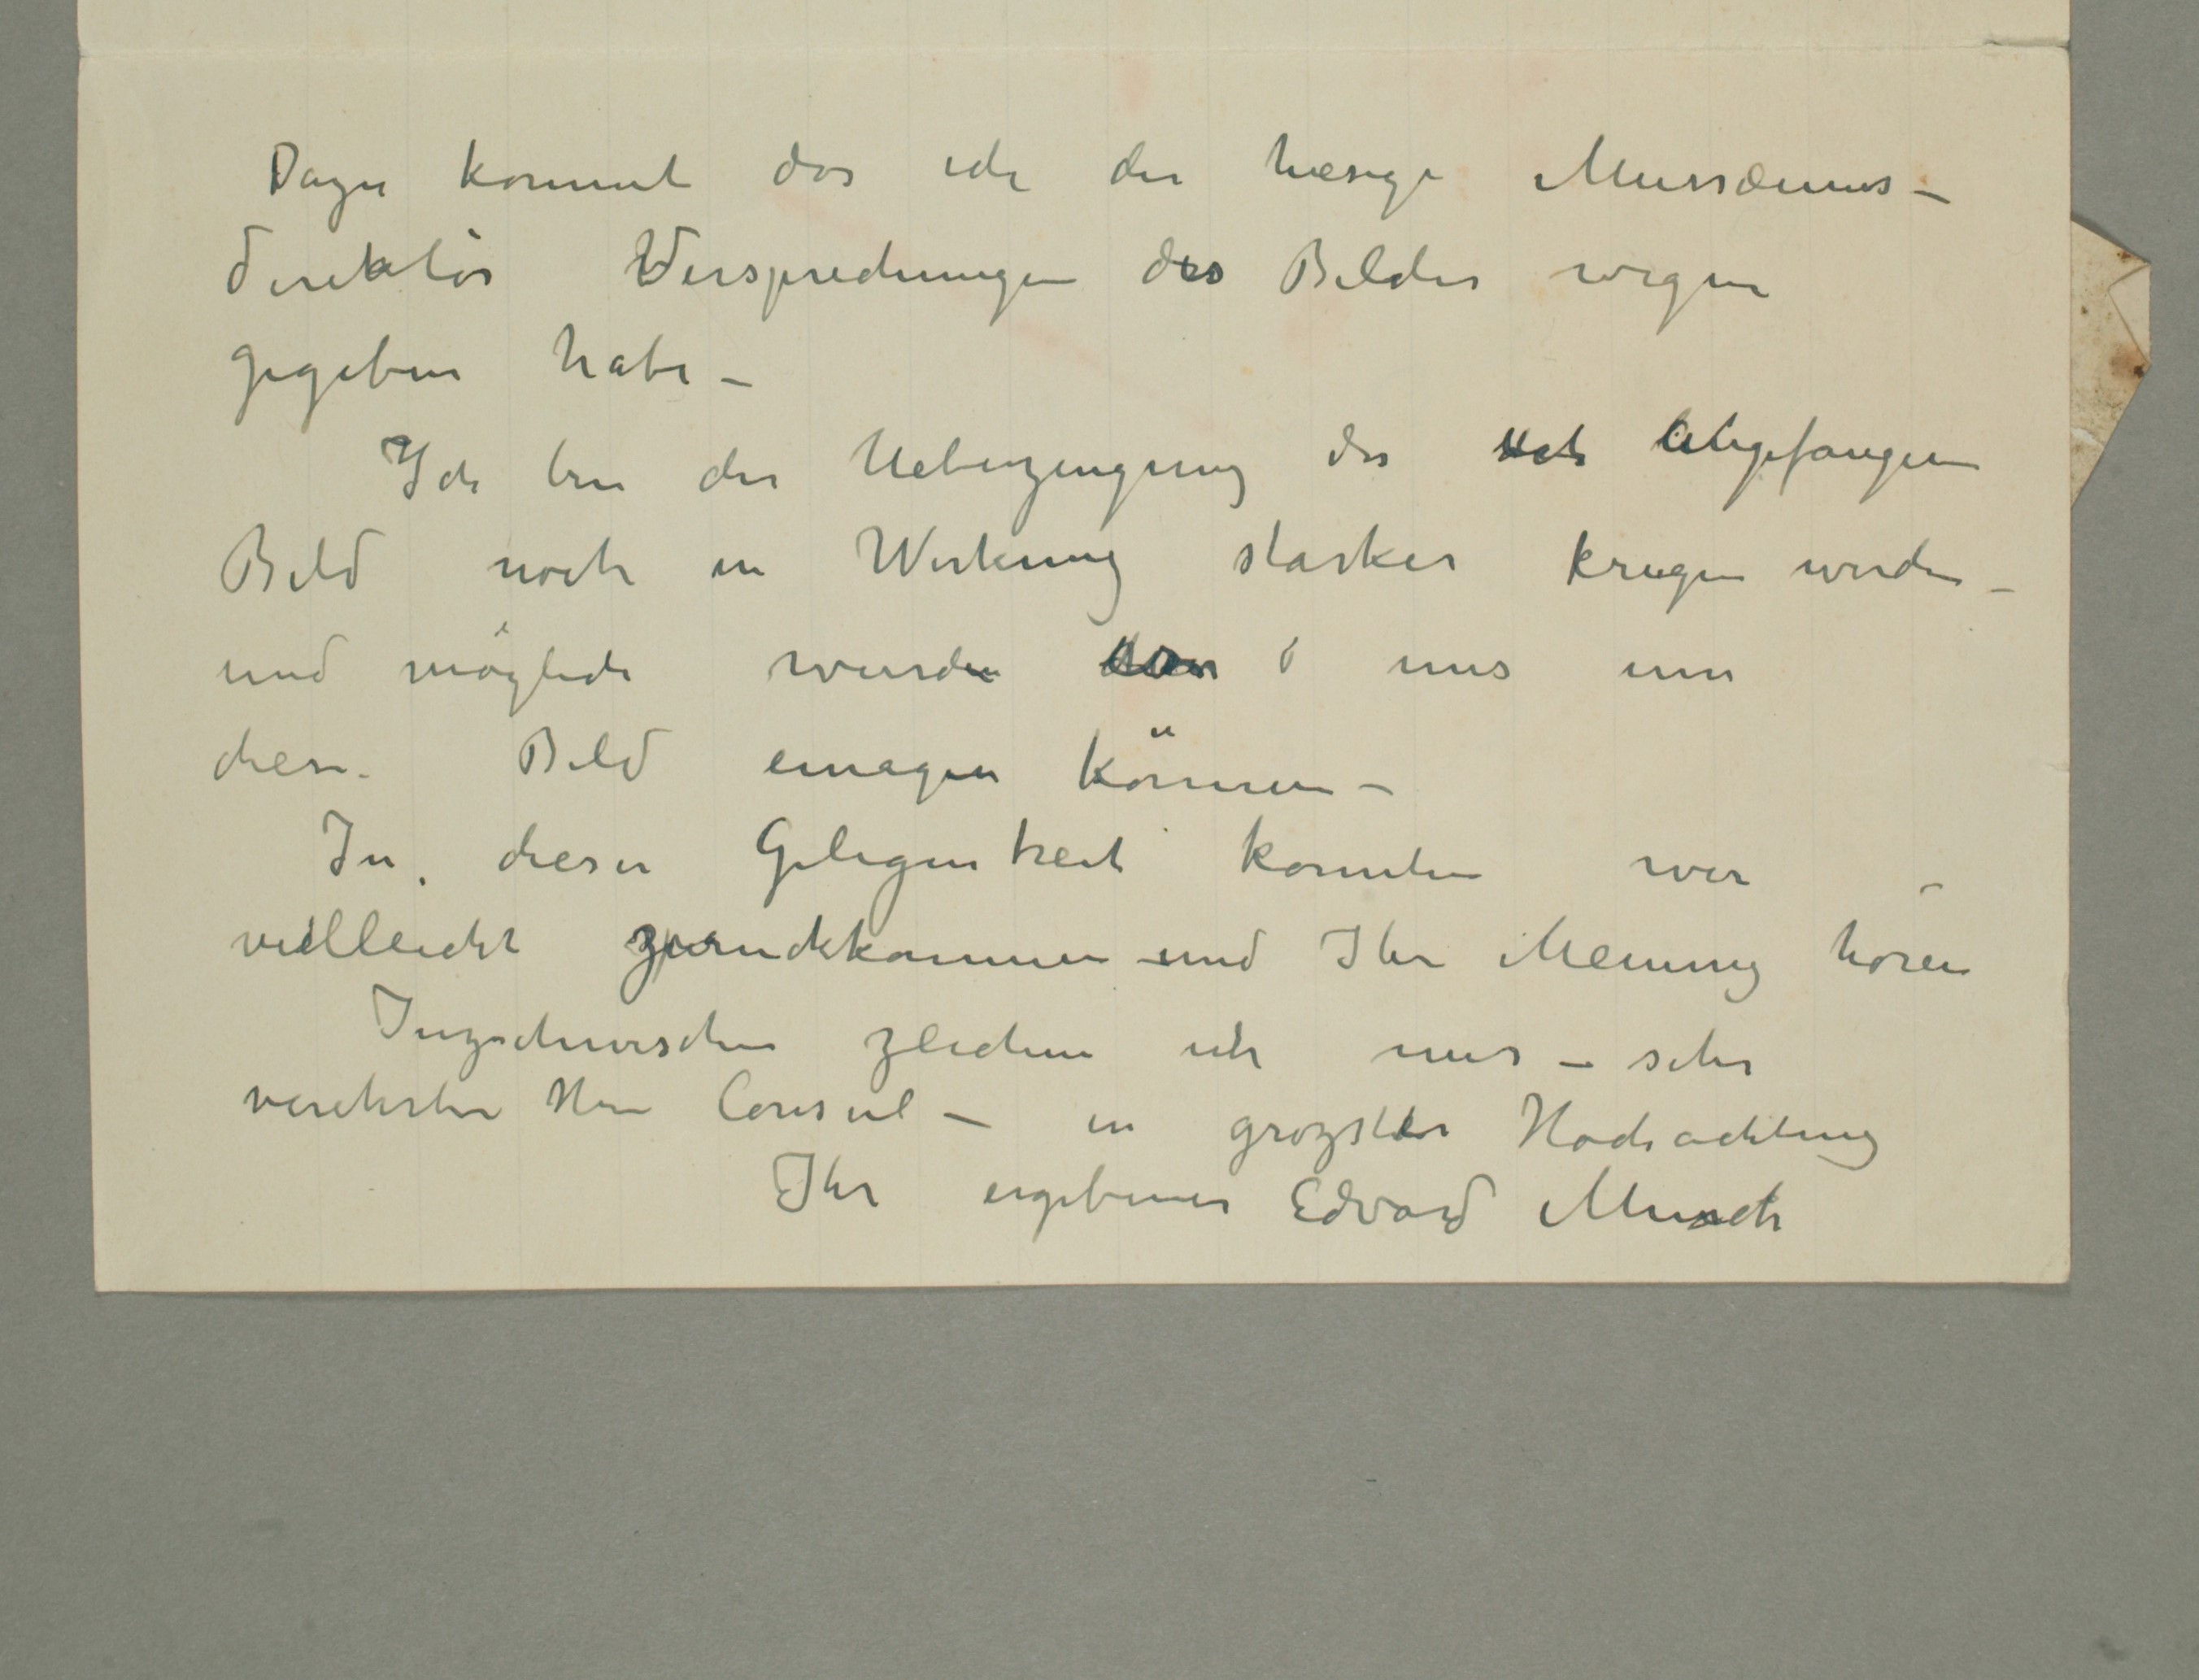 Dazu kommt das ich der hiesige Mussæums –
direktör Versprechungen des Bildes wegen
gegeben habe –
Ich bin der Ueberzeugung das angefangen
Bild noch in Wirkung starker kriegen werde –
und möglich wurde uns um
diese Bild einagen können –
In dieser Gelegenheit konnten wir
vielleicht zuruckkommen und Ihr Meinung hören
Inzschwischen zeichne ich mir – sehr
verehrter Herr Consul – in grozster Hochachtung
Ihr ergebener Edvard Munch